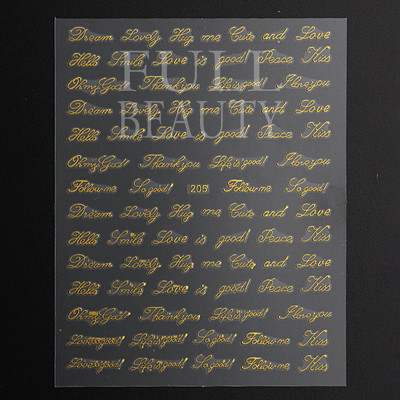 Dream Lovely Hug me Cute and Love
Hello Smile Love is good! Peace Kiss
Oh my God! Thank you Life is good! I love you
Dream Lovely Hug me Cute and Love
Hello Smile Love is good! Peace Kiss
FULL
BEAUTY
Oh my God! Thank you Life is good! I love you
Follow me So good! 205 Follow me So good!
Dream Lovely Hug me Cute and Love
Hello Smile Love is good! Peace Kiss
Dream Lovely Hug me Cute and Love
Hello Smile Love is good! Peace Kiss
Oh my God! Thank you Life is good! I love you
Love is good! Life is good! So good! Follow me Kiss
Love is good! Life is good! So good! Follow me Kiss